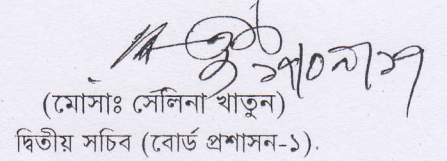 (মোসাঃ সেলিনা খাতুন)
দ্বিতীয় সচিব (বোর্ড প্রশাসন-১).